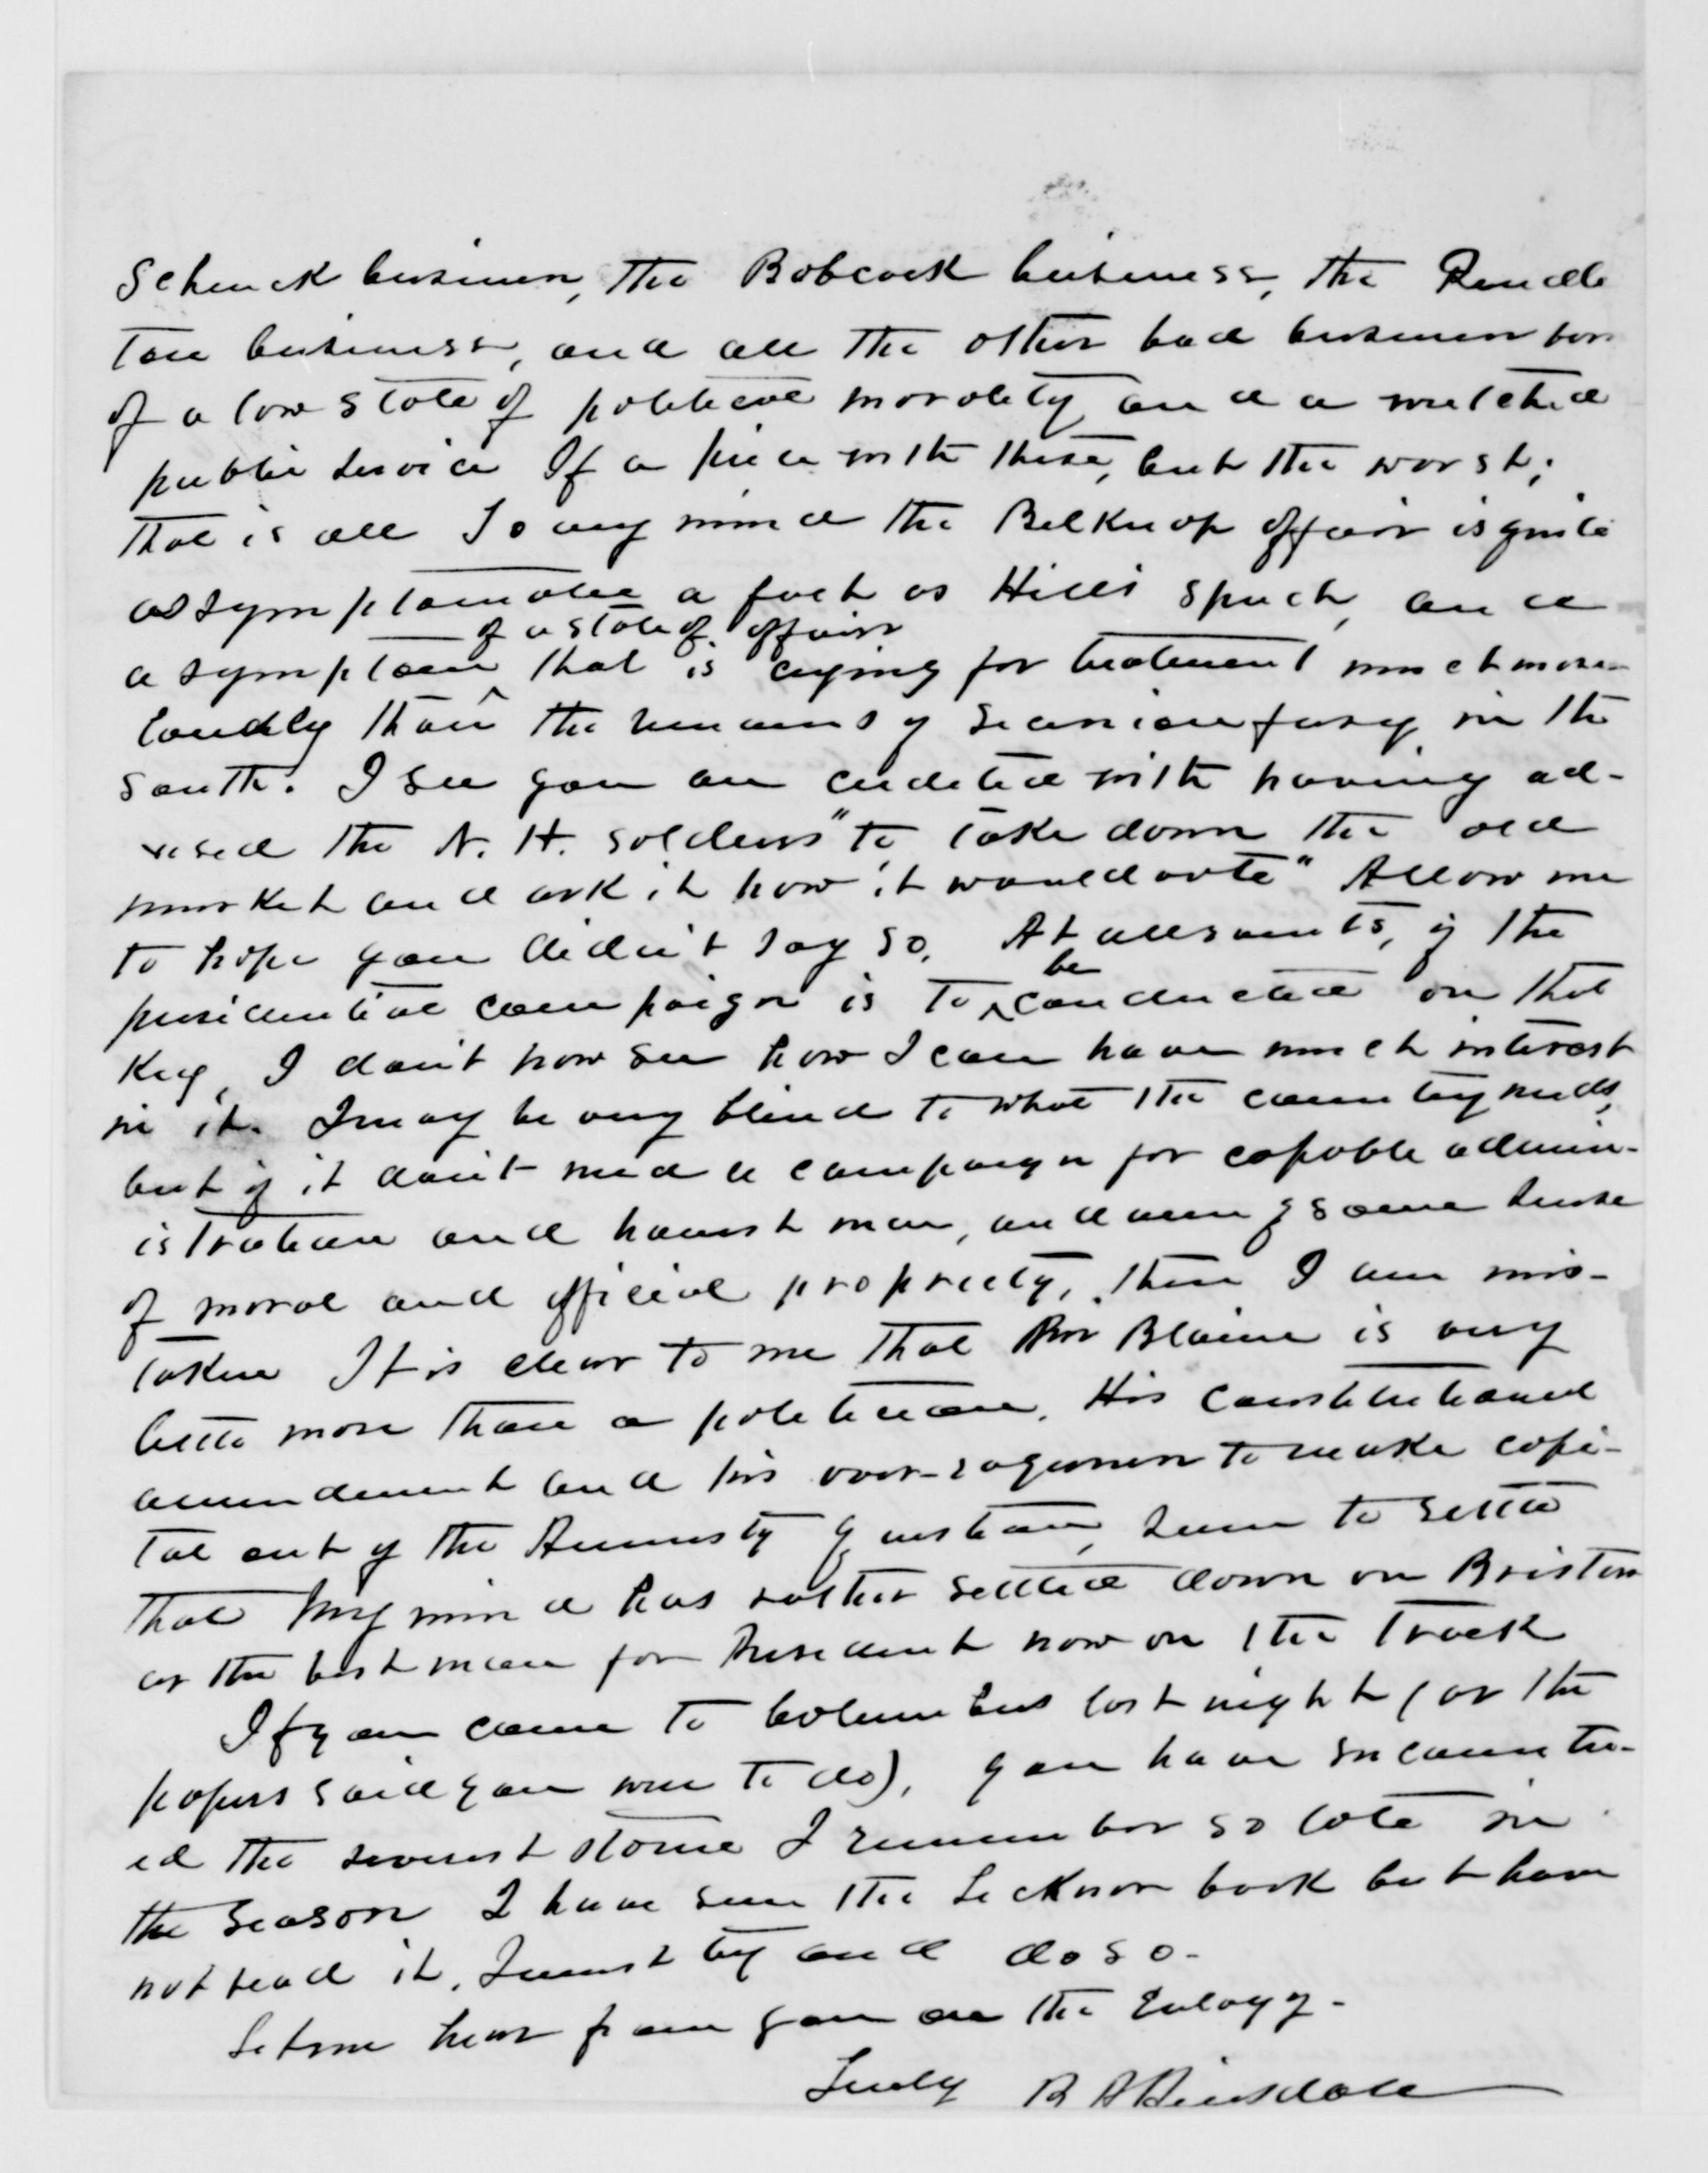 Schenck business, the Babcock business, the Pendle
ton business, and all the other bad business born
of a low state of political morality and a wretched
public service Of a piece with these, but the worst;
that is all To my mind the Belknap affair is quite
as symptomatic a fact as Hill's speech, and
of a state of affairs
a symptom that is crying for treatment much more
loudly than the remains of secession fury in the
south. I see you are credited with having ad-
vised the N. H. soldiers "to take down the old
musket and ask it how it would vote" Allow me
to hope you didn't say so. At all events, if the
be
presidential campaign is to conducted on that
key, I don't now see how I can have much interest
in it. I may be very blind to what the country needs,
but if it don't need a campaign for capable admin-
istration and honest men, and men of some sense
of moral and official propriety, then I am mis-
taken It is clear to me that Mr Blaine is very
little more than a politician. His constitutional
amendment and his over-eagerness to make capi-
tal out of the Amnesty question, seem to settle
that My mind has rather settled down on Bristow
as the best man for President now on the track
If you came to Columbus last night (as the
papers said you were to do), you have encounter-
ed the severest storm I remember so late in
the season I have seen the Lecknor book but have
not read it. I must try and do so.
Let me hear from you on the Eulogy.
Truly B A Hinsdale